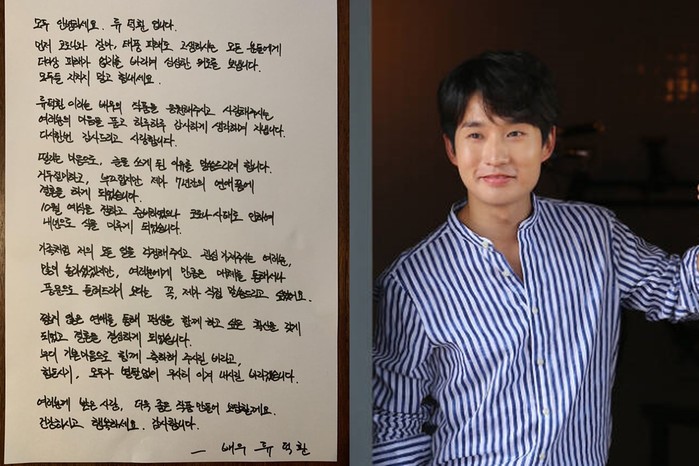 모두 안녕하세요. 류 덕환 입니다.
먼저 코로나와 장마, 태풍 피해로 고생하시는 모든 분들에게
더이상 피해가 없기를 바라며 심심한 위로를 보냅니다.
모두들 지치지 말고 힘내세요.
류덕환 이라는 배우의 작품을 응원해주시고 사랑해주시는
여러분의 마음을 품고 하루하루 감사하게 생각하며 지냅니다.
다시한번 감사드리고 사랑합니다.
떨리는 마음으로, 글을 쓰게 된 이유를 말씀드리려 합니다.
거두절미하고, 부끄럽지만 제가 7년간의 연애 끝에
결혼을 하게 되었습니다.
10월 예식을 정하고 준비하였으나 코로나 사태로 인하여
내년으로 식을 미루게 되었습니다.
가족처럼 저의 모든 일을 걱정해주시고 관심 가져주시는 여러분,
많이 놀라셨겠지만, 여러분에게 만큼은 매체를 통해서나
풍문으로 들려드리기 보다는 꼭, 제가 직접 말씀드리고 싶었어요.
짧지 않은 연애를 통해 평생을 함께 하고 싶은 확신을 갖게
되었고 결혼을 결심하게 되었습니다.
부디 기쁜마음으로 함께 축하해 주시길 바라고,
힘든시기, 모두가 별탈없이 무사히 이겨 내시길 바라겠습니다.
여러분께 받은 사랑, 더욱 좋은 작품 만들어 보답할게요.
건강하시고 행복하세요. 감사합니다.
- 배우 류 덕 환